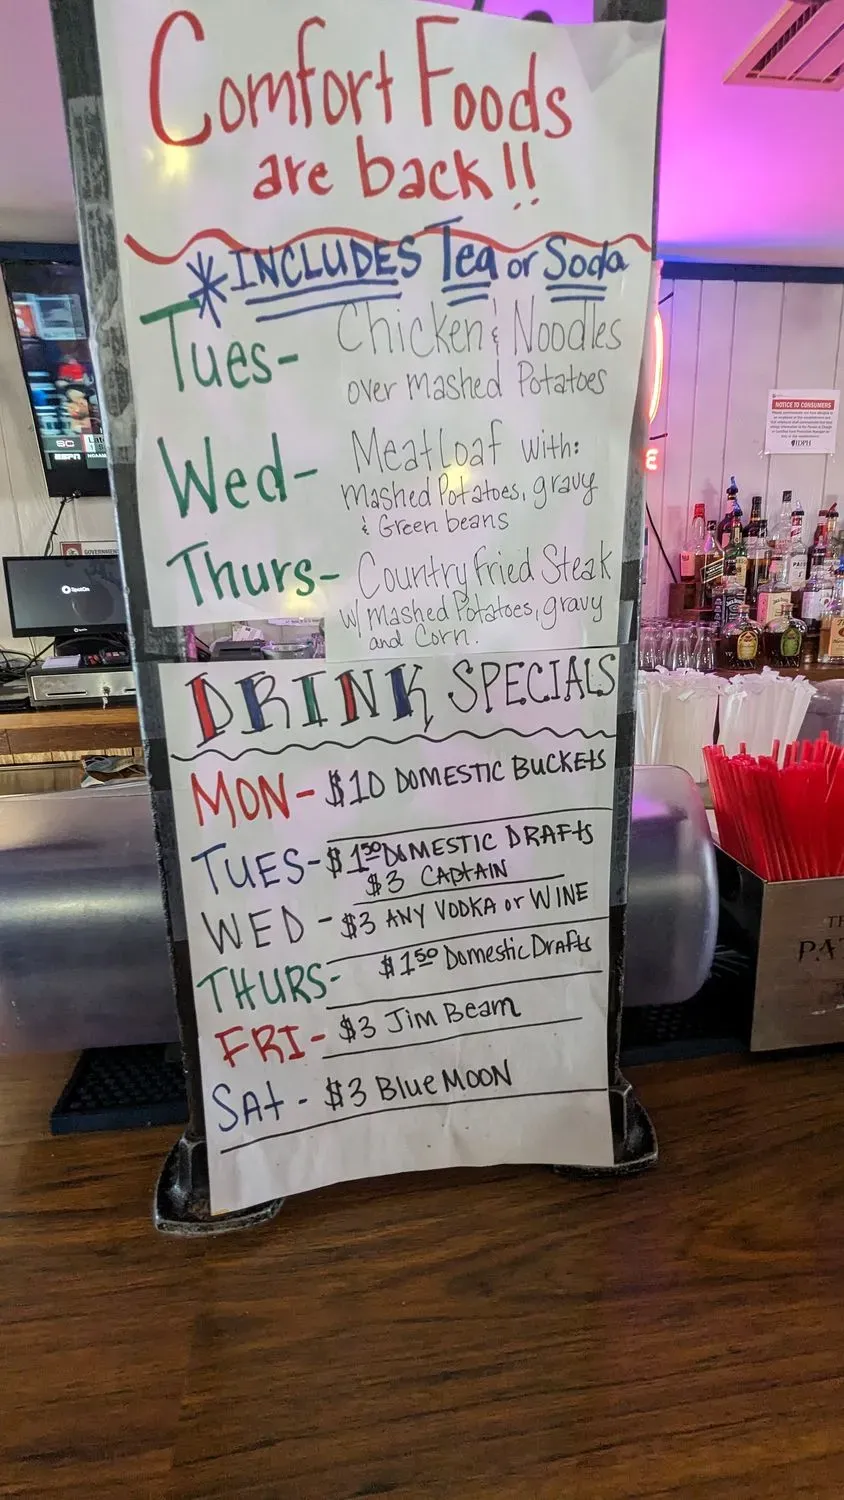 Comfort Foods
are back!!
*INCLUDES Tea or Soda
Tues- Chicken & Noodles
over Mashed Potatoes
Wed- Meatloaf with:
Mashed Potatoes, gravy
& Green beans
Thurs- Country Fried Steak
w/ Mashed Potatoes, gravy
and Corn.
DRINK SPECIALS
MON- $10 DOMESTIC BUCKETS
TUES- $1.50 DOMESTIC DRAFTS
$3 CAPTAIN
WED - $3 ANY VODKA or WINE
THURS- $1.50 Domestic Drafts
FRI- $3 Jim Beam
SAt - $3 Blue MOON
NOTICE TO CONSUMERS
IDPH
SpotOn
ESPN
GOVERNMENT